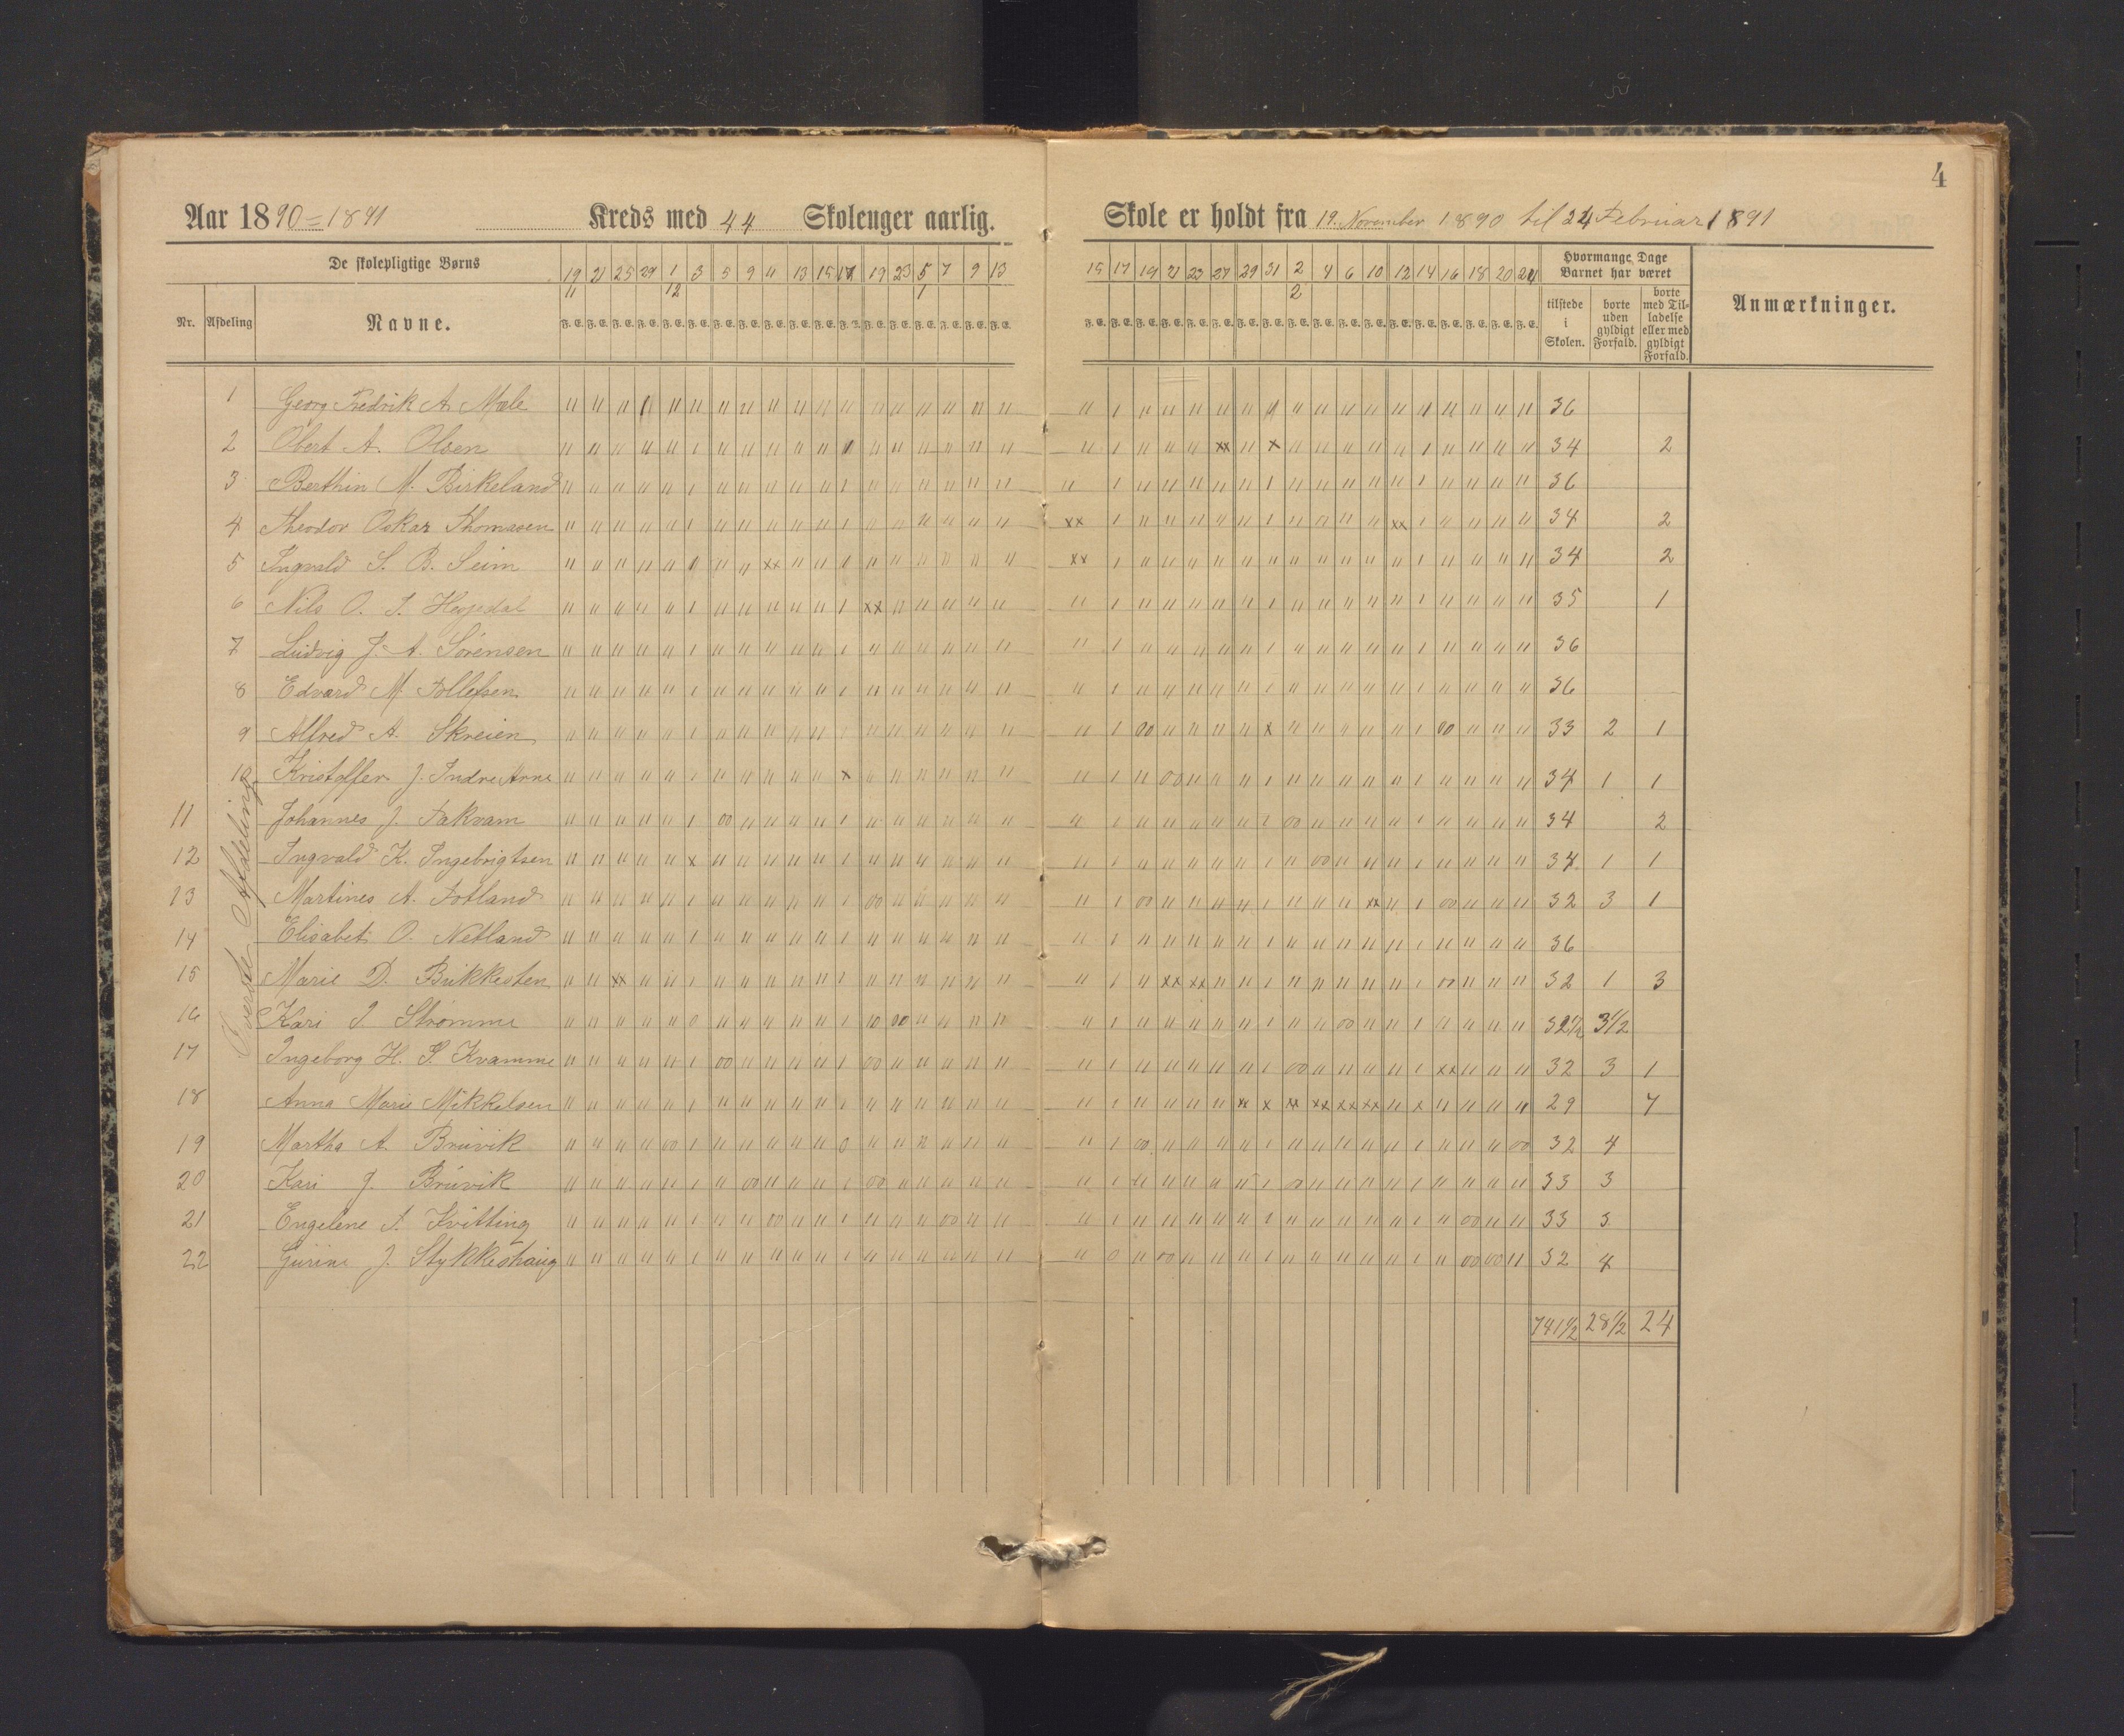 4
Aar 1890=1891 Kreds med 44 Skoleuger aarlig. Skole er holdt fra 19. November 1890 til 24 Februar 1891
De skolepligtige Børns
19 21 25 29 1 3 5 9 11 13 15 17 19 23 5 7 9 13 15 17 19 21 23 27 29 31 2 4 6 10 12 14 16 18 20 24
11 12 1 2
Hvormange Dage Barnet har været
Nr. Afdeling Navne.
F. E. F. E. F. E. F. E. F. E. F. E. F. E. F. E. F. E. F. E. F. E. F. E. F. E. F. E. F. E. F. E. F. E. F. E. F. E. F. E. F. E. F. E. F. E. F. E. F. E. F. E. F. E. F. E. F. E. F. E. F. E. F. E. F. E. F. E. F. E. F. E.
tilstede i Skolen.
borte uden gyldigt Forfald.
borte med Tilladelse eller med gyldigt Forfald.
Anmærkninger.
Øverste Afdeling
1 Georg Fredrik A. Mæle 36
2 Obert A. Olsen 34 2
3 Berthin M. Birkeland 36
4 Theodor Oskar Thomasen 34 2
5 Ingvald S. B. Seim 34 2
6 Nils O. 35 1
7 Ludvig J. A. Sørensen 36
8 Edvard M. Tollefsen 36
9 Alfred A. Skreien 33 2 1
10 Kristoffer J. Indre Arne 34 1 1
11 Johannes J. Takvam 34 2
12 Ingvald K. Ingebrigtsen 34 1 1
13 Martines A. Totland 32 3 1
14 Elisabet O. Netland 36
15 Marie D. Bukkesten 32 1 3
16 Kari I. Strømme 32 1/2 3 1/2
17 Ingeborg H. S. Kvamme 32 3 1
18 Anna Marie Mikkelsen 29 7
19 Martha A. Bruvik 32 4
20 Kari J. Bruvik 33 3
21 Engeline A. Kvitting 33 3
22 Gurine J. Stykkeshaug 32 4
741 1/2 28 1/2 24